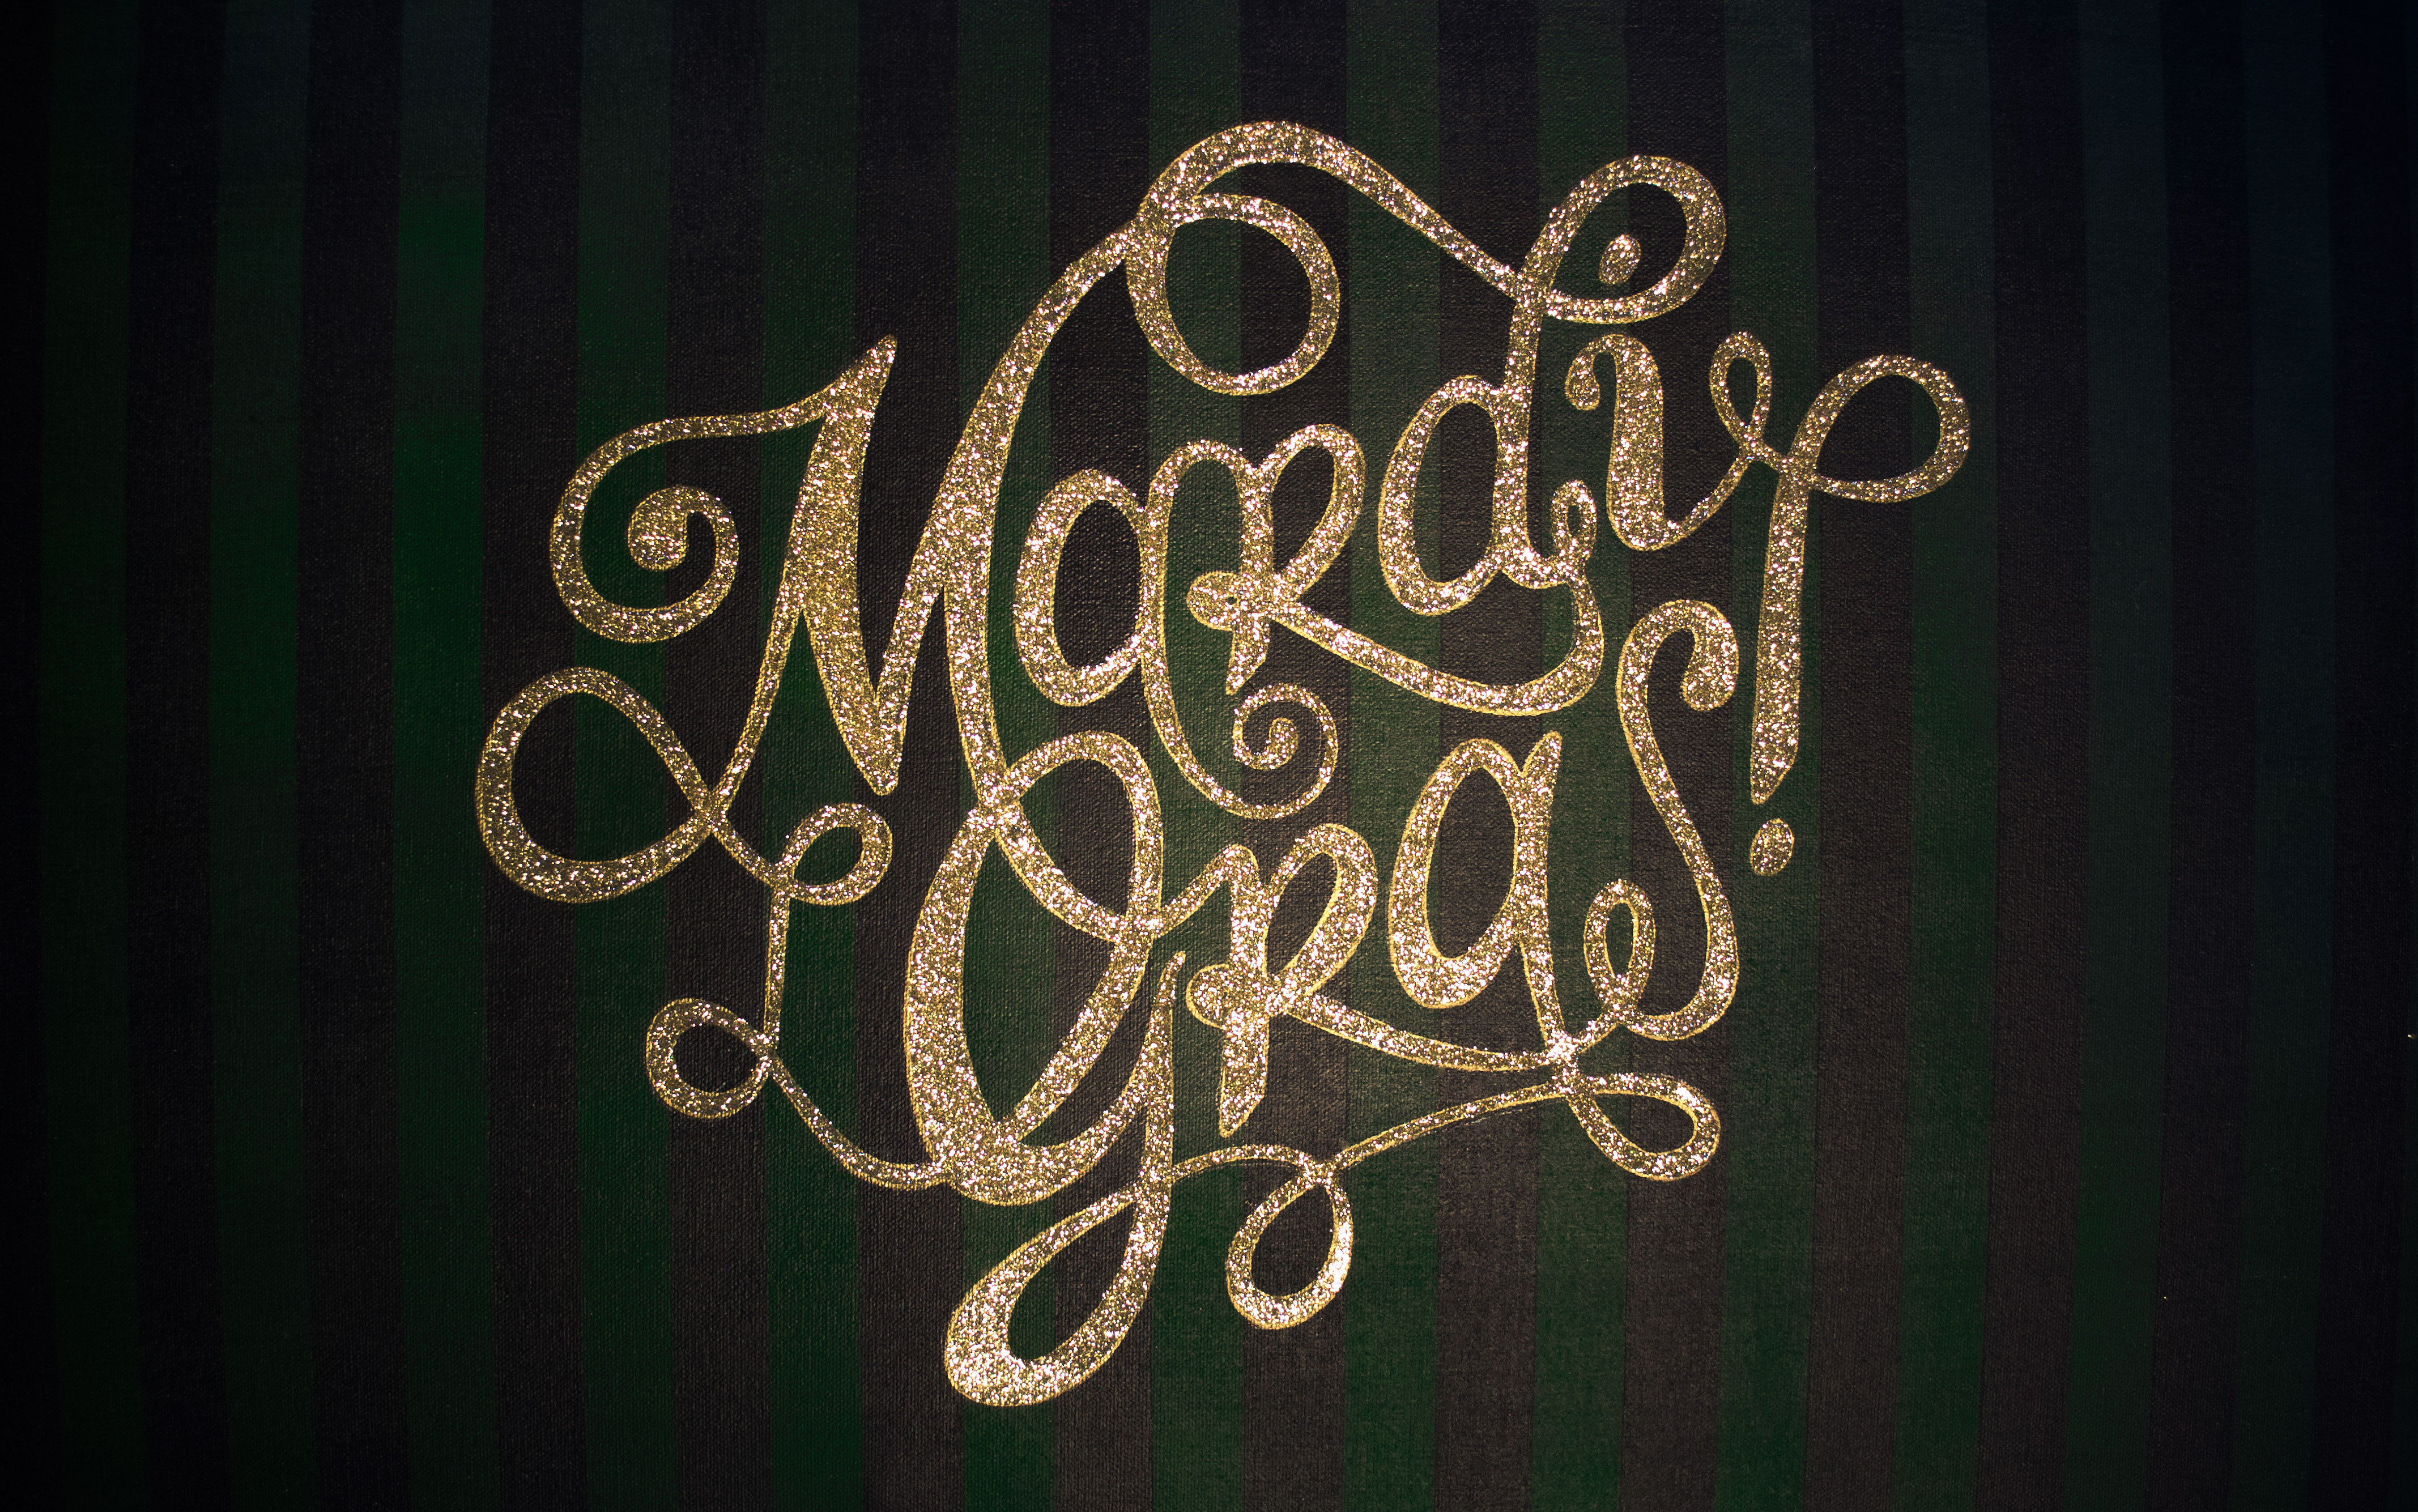 Mardi
Gras!